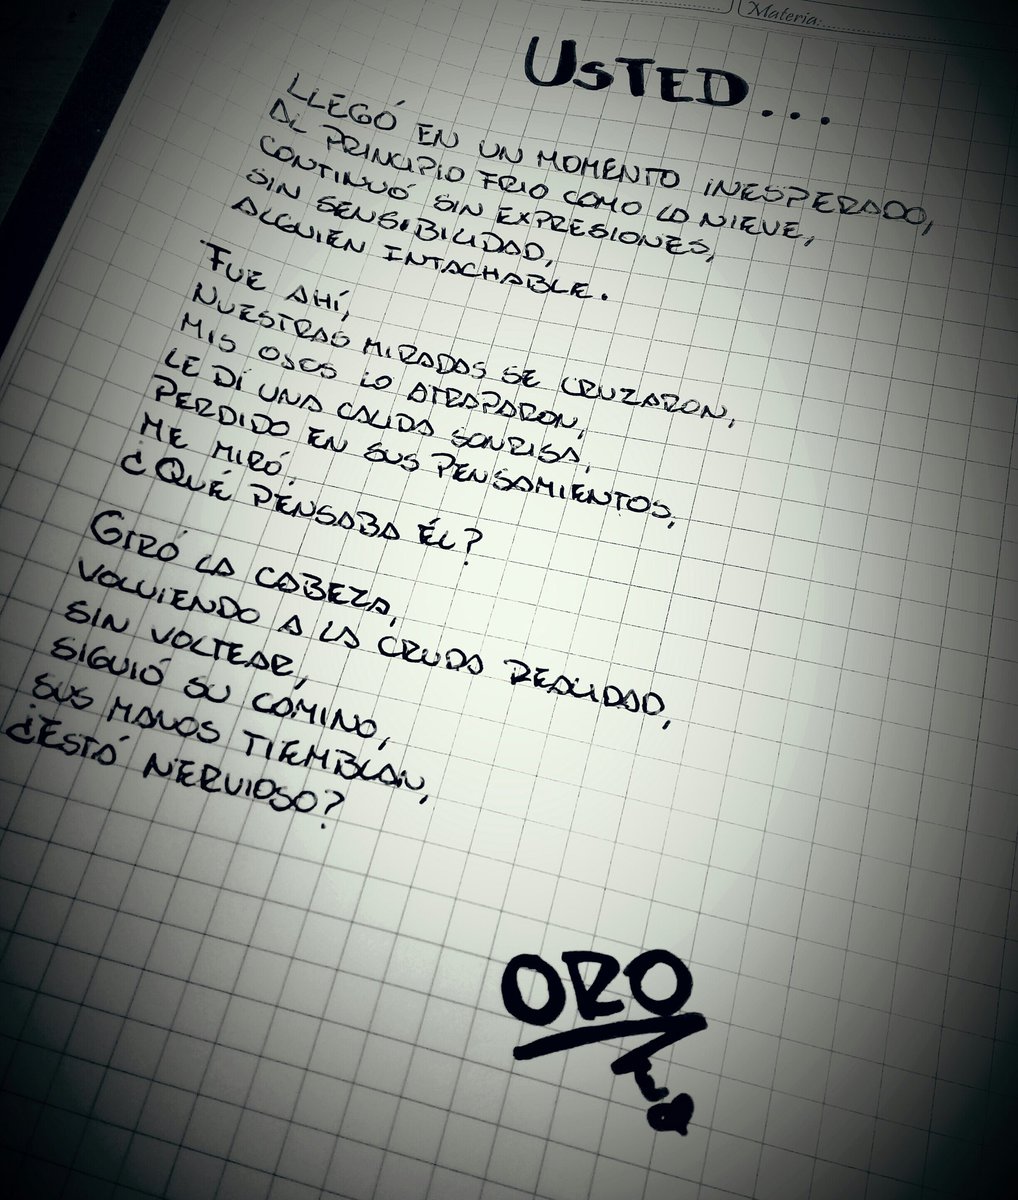 Materia:
USTED...
LLEGÓ EN UN MOMENTO INESPERADO,
AL PRINCIPIO FRIO COMO LA NIEVE,
CONTINUÓ SIN EXPRESIONES,
SIN SENSIBILIDAD,
ALGUIEN INTACHABLE.
FUE AHÍ,
NUESTRAS MIRADAS SE CRUZARON,
MIS OJOS LO ATRAPARON,
LE DÍ UNA CALIDA SONRISA,
PERDIDO EN SUS PENSAMIENTOS,
ME MIRÓ,
¿QUÉ PENSABA ÉL?
GIRÓ LA CABEZA,
VOLVIENDO A LA CRUDA REALIDAD,
SIN VOLTEAR,
SIGUIÓ SU CAMINO,
SUS MANOS TIEMBLAN,
¿ESTÁ NERVIOSO?
ORO